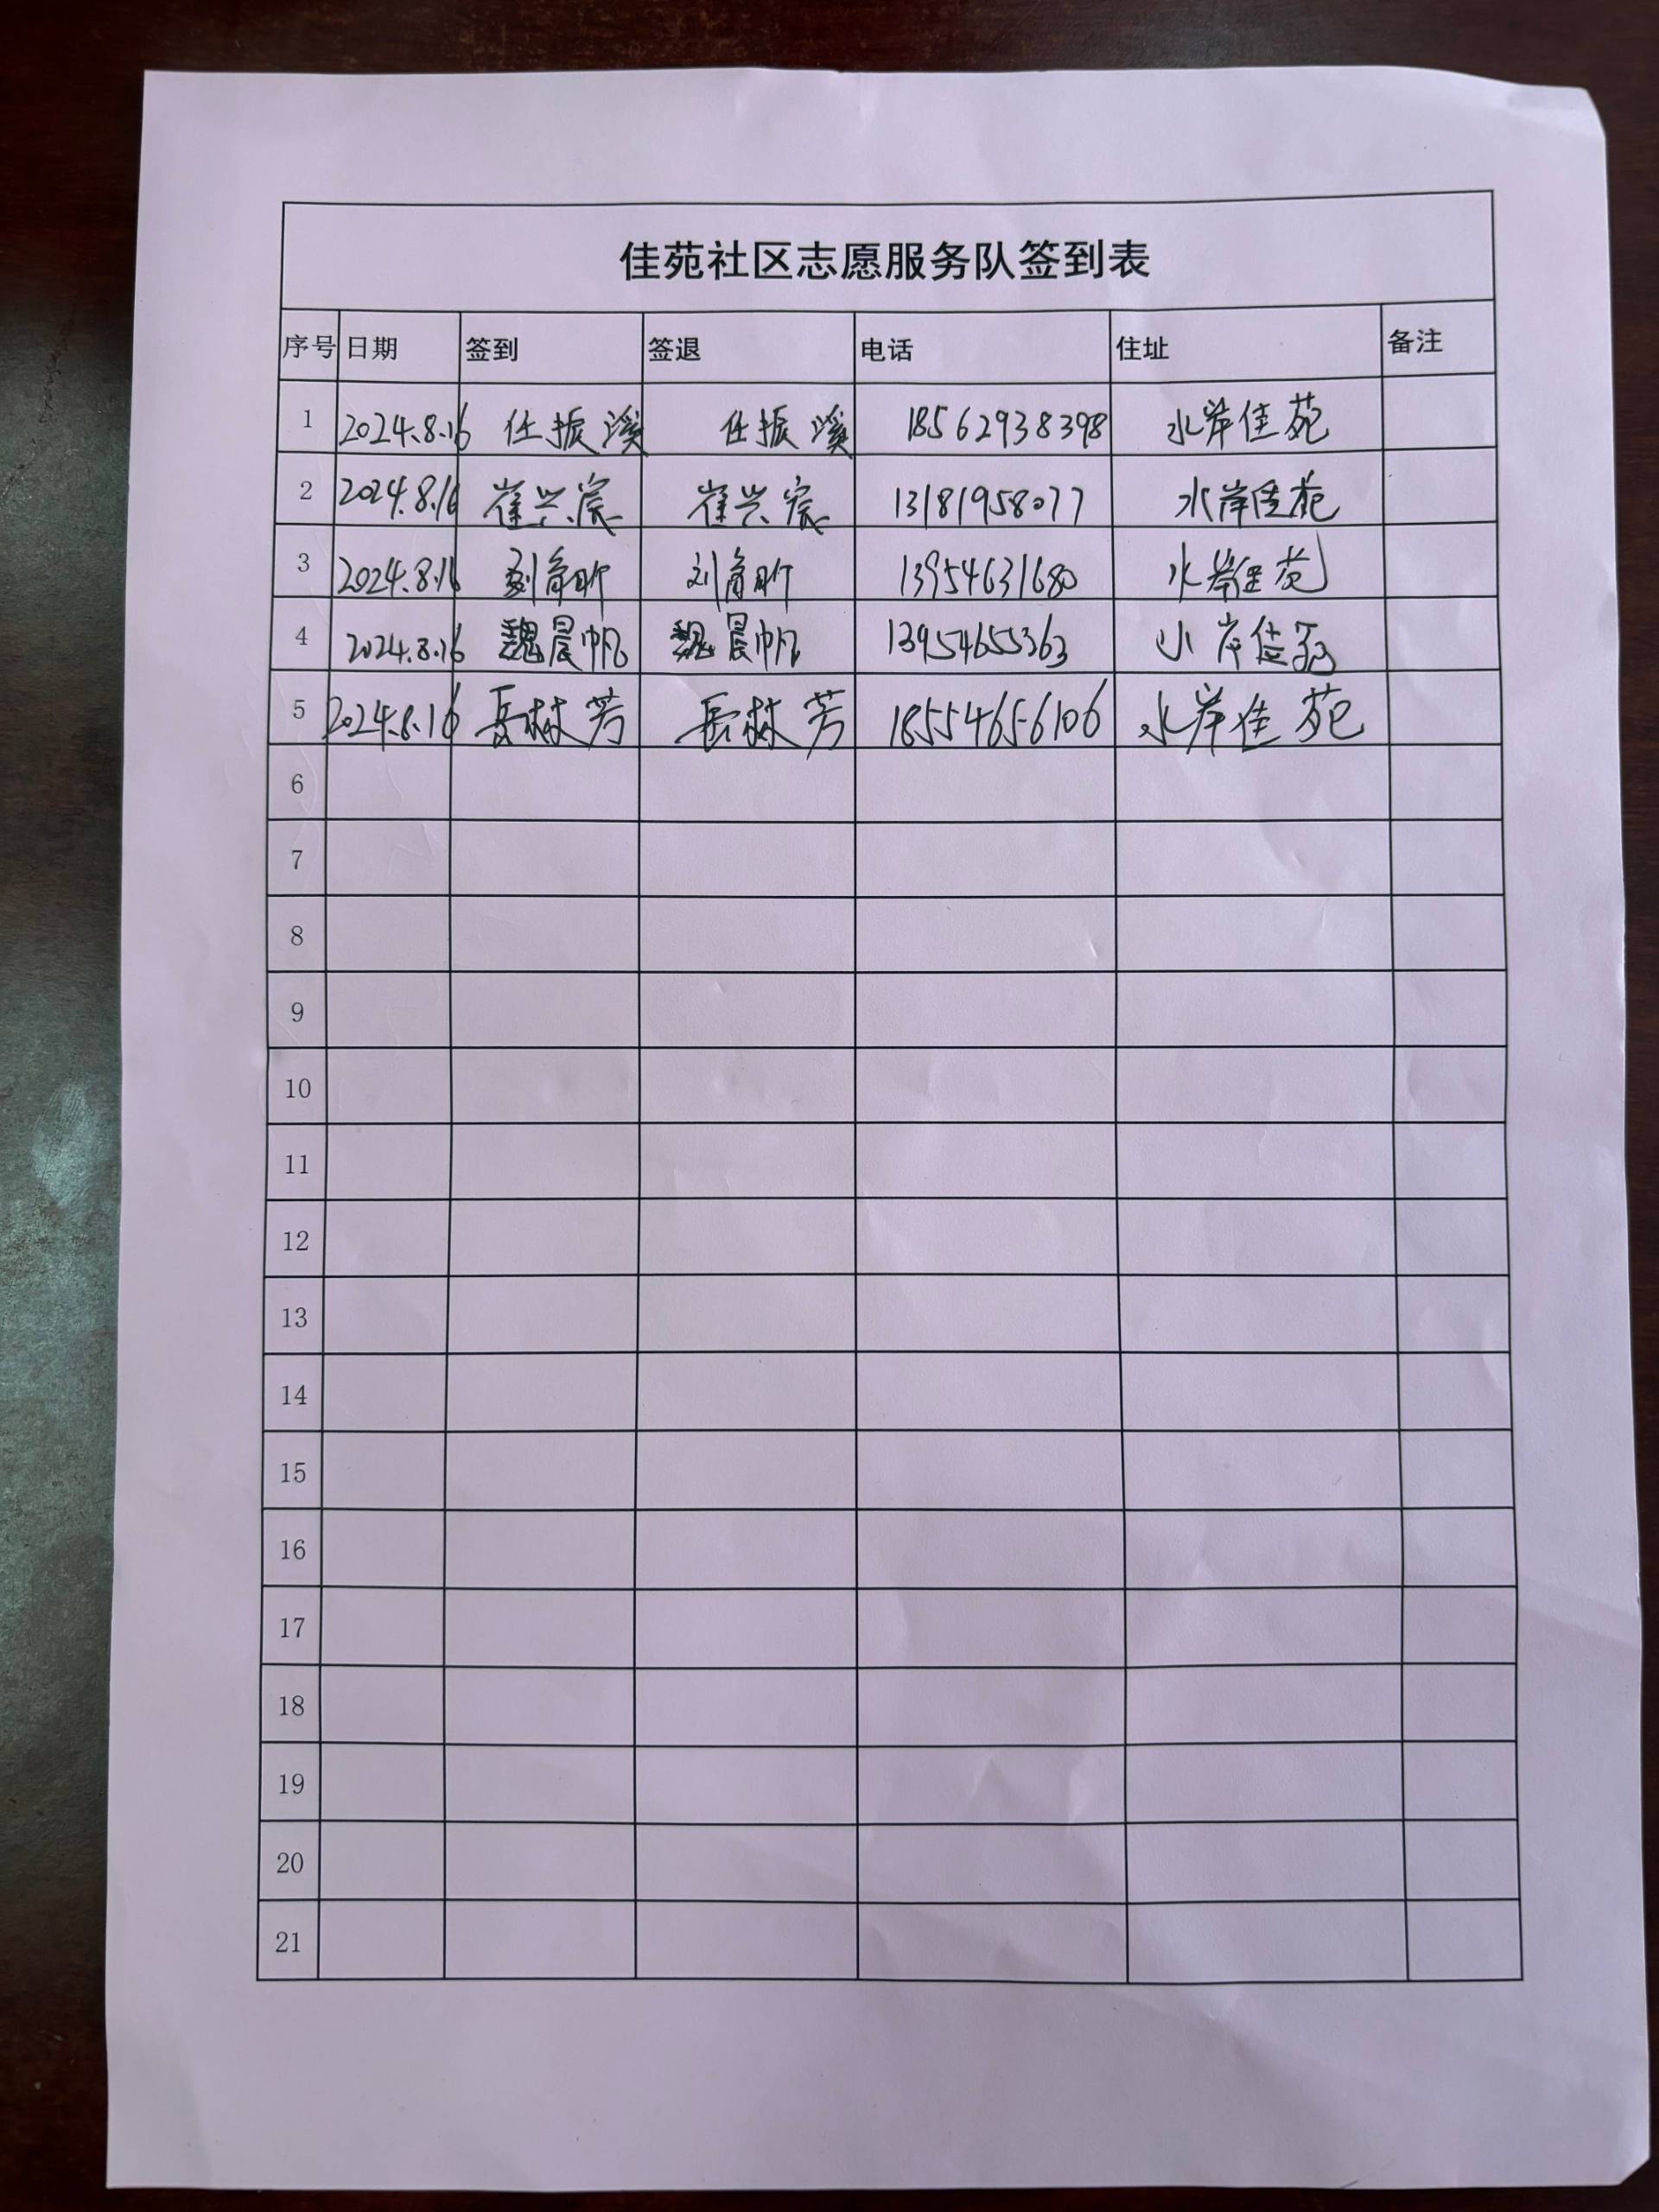 佳苑社区志愿服务队签到表
序号 日期 签到 签退 电话 住址 备注
1 2024.8.16 任振溪 任振溪 18562938398 水岸佳苑
2 2024.8.16 崔兴宸 崔兴宸 13181958077 水岸佳苑
3 2024.8.16 刘育昕 刘育昕 13954631680 水岸佳苑
4 2024.8.16 魏晨帆 魏晨帆 13954655363 水岸佳苑
5 2024.8.16 岳林芳 岳林芳 18554656106 水岸佳苑
6
7
8
9
10
11
12
13
14
15
16
17
18
19
20
21